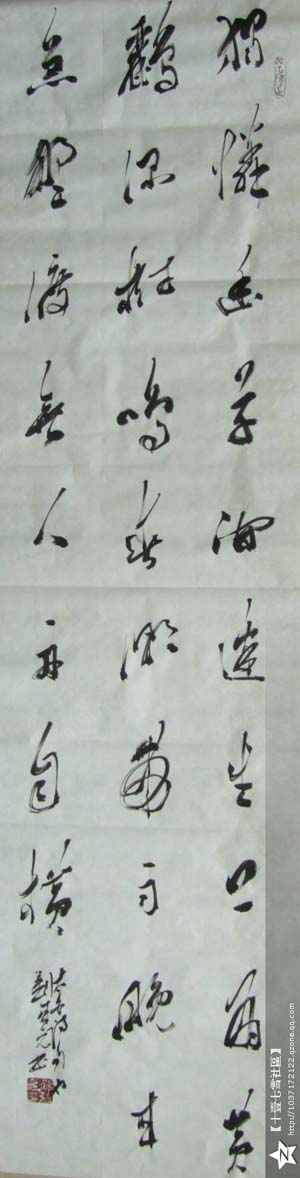 獨憐幽草澗邊生上有黄
鸝深樹鳴春潮帶雨晚來
急野渡無人舟自橫
【十壹七雪社區】
http://1037172122.qzone.qq.com